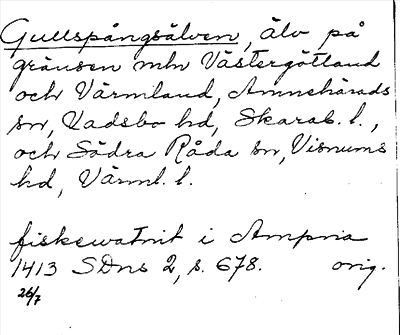 Gullspångsälven, älv på
gränsen mln Västergötland
och Värmland, Amnehärads
sn, Vadsbo hd, Skarab. l.,
och Södra Råda sn, Visnums
hd, Värml. l.
fiskewatnit i Ampnia
1413 SDns 2, s. 678. orig.
26/7